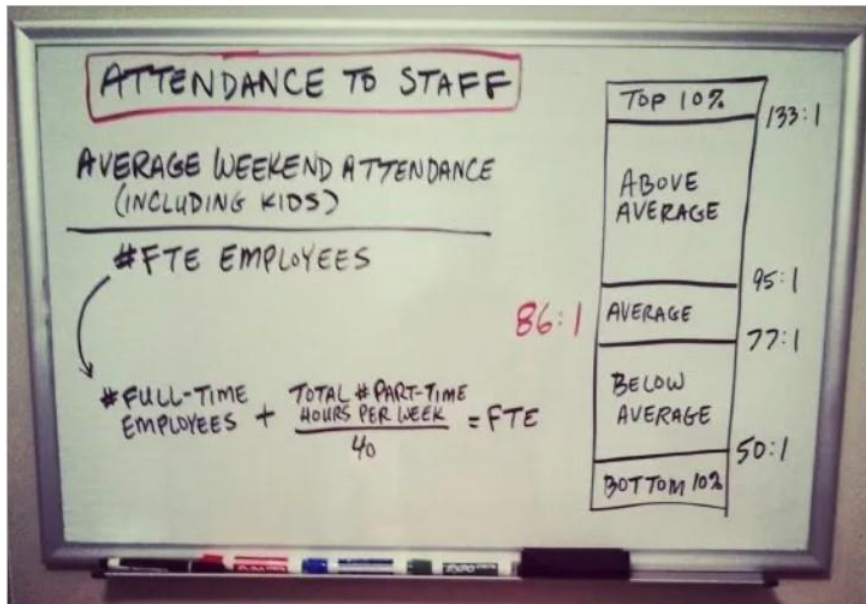 ATTENDANCE TO STAFF
AVERAGE WEEKEND ATTENDANCE
(INCLUDING KIDS)
#FTE EMPLOYEES
#FULL-TIME
EMPLOYEES
+
TOTAL #PART-TIME
HOURS PER WEEK
40
= FTE
86:1
TOP 10%
133:1
ABOVE
AVERAGE
95:1
AVERAGE
77:1
BELOW
AVERAGE
50:1
BOTTOM 10%
EXPO